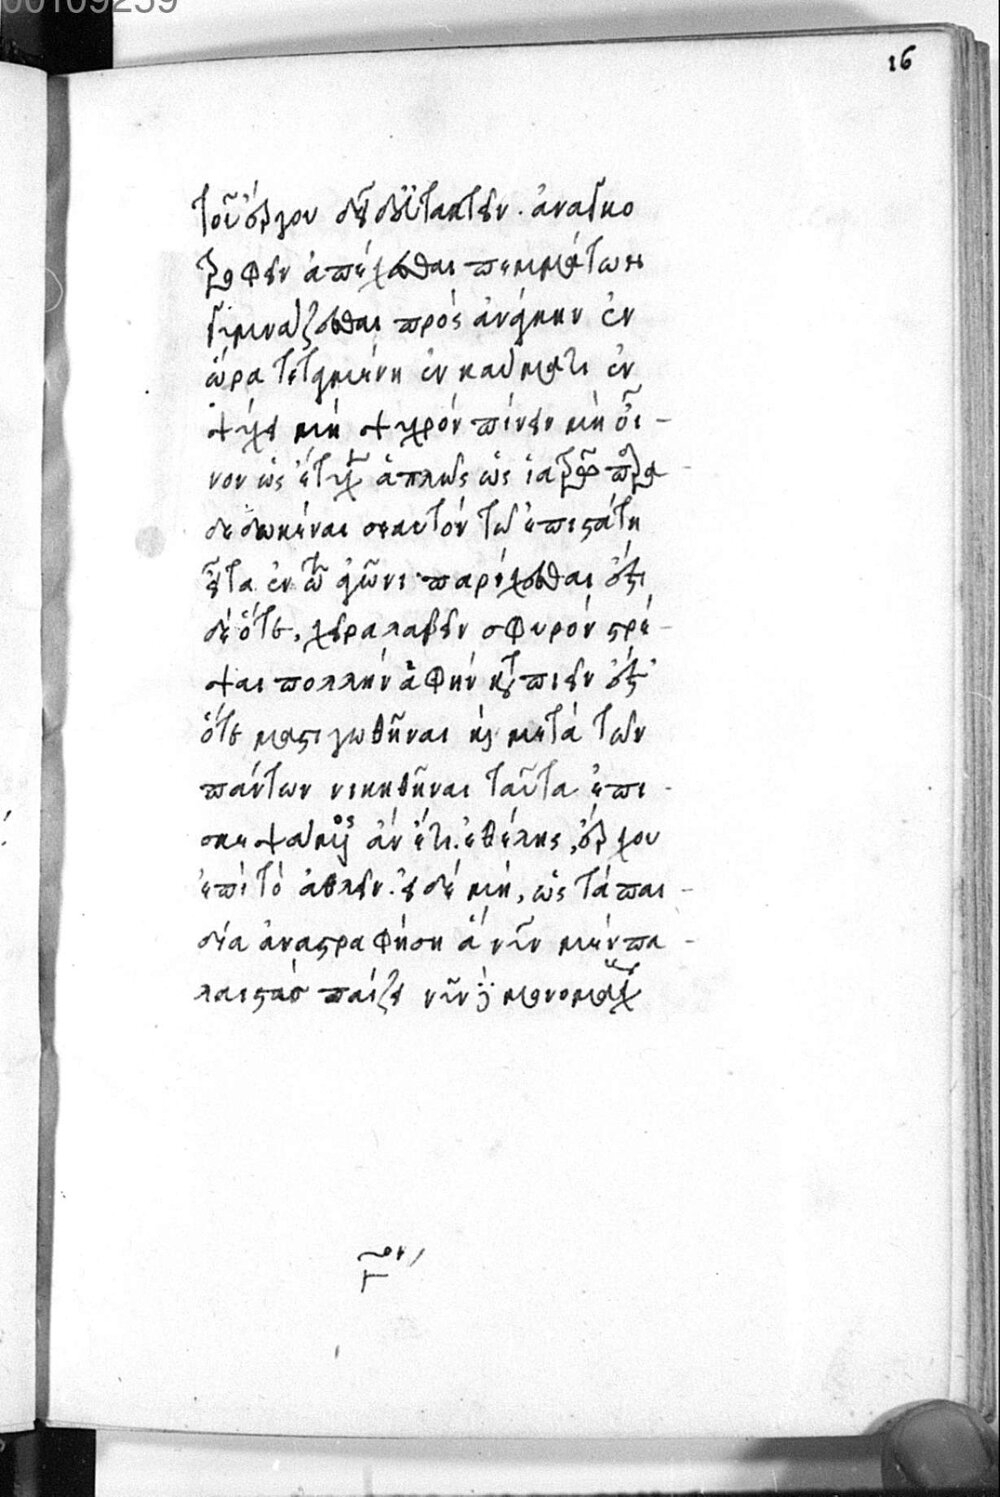 16
τοῦ ἔργου δεῖ σ' εὐτακτεῖν. ἀναγκο
τροφεῖν ἀπέχεσθαι πεμμάτων
γυμνάζεσθαι πρὸς ἀνάγκην ἐν
ὥρα τεταγμένη ἐν καύματι ἐν
ψύχει μὴ ψυχρὸν πίνειν μὴ οἶ-
νον ὡς ἔτυχεν ἁπλῶς ὡς ἰατρῷ παρα-
δεδωκέναι σεαυτὸν τῷ ἐπιστάτη
εἶτα ἐν τῷ ἀγῶνι παρέρχεσθαι ἔστι
δὲ ὅτε, χεῖρα λαβεῖν σφυρὸν στρέ-
ψαι πολλὴν ἀφὴν καταπιεῖν ἔσθ'
ὅτε μαστιγωθῆναι καὶ μετὰ των
πάντων νικηθῆναι ταῦτα ἐπι-
σκεψάμενος ἂν ἔτι ἐθέλης, ἔρχου
ἐπὶ τὸ ἀθλεῖν. εἰ δὲ μὴ, ὡς τὰ παι-
δία ἀναστραφήση ἃ νῦν μὲν πα-
λαιστὰς παίζει νῦν δὲ μονομάχους